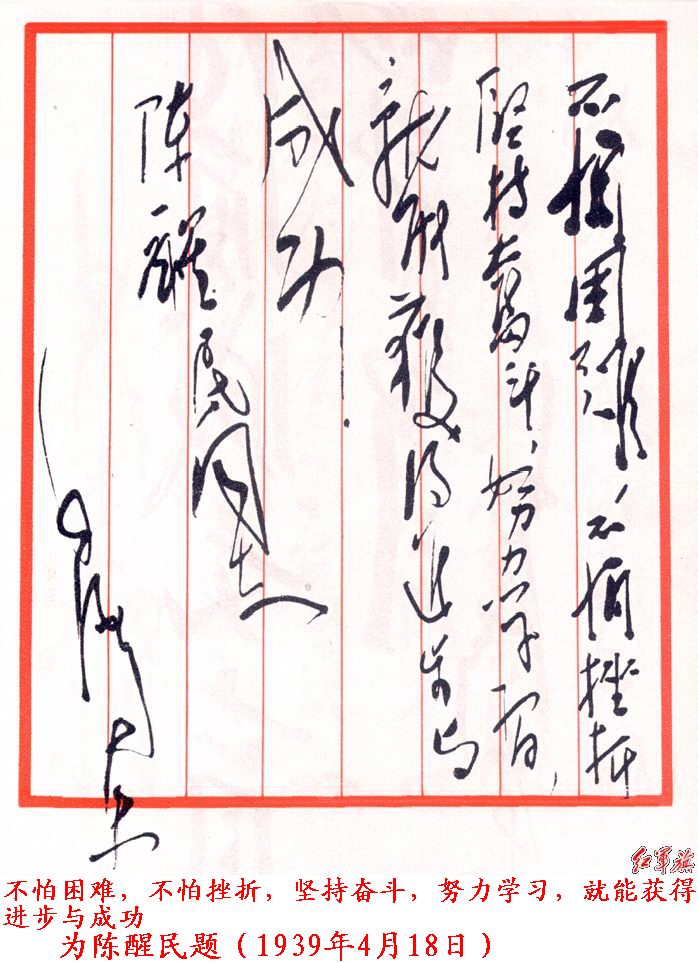 不怕困难，不怕挫折
坚持奮斗，努力学習，
就能獲得进步与
成功.
陈醒民同志
红军旗
不怕困难，不怕挫折，坚持奋斗，努力学习，就能获得
进步与成功
为陈醒民题（1939年4月18日）